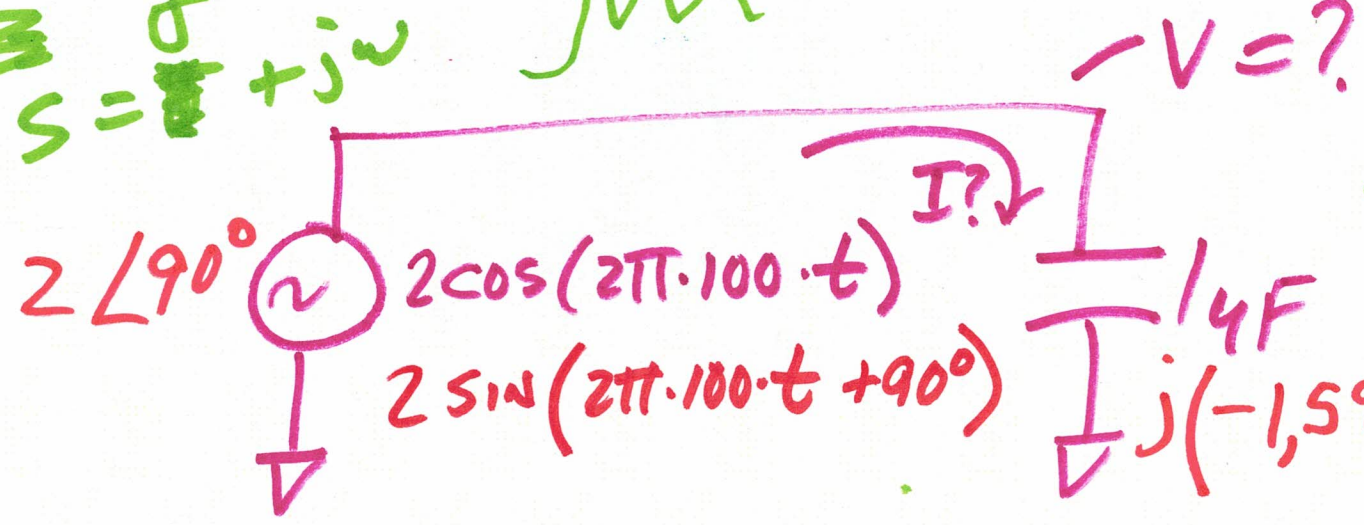 s = σ + jω
V = ?
I?
2∠90°
2cos(2π·100·t)
1μF
2 SIN(2π·100·t +90°)
j(-1,5